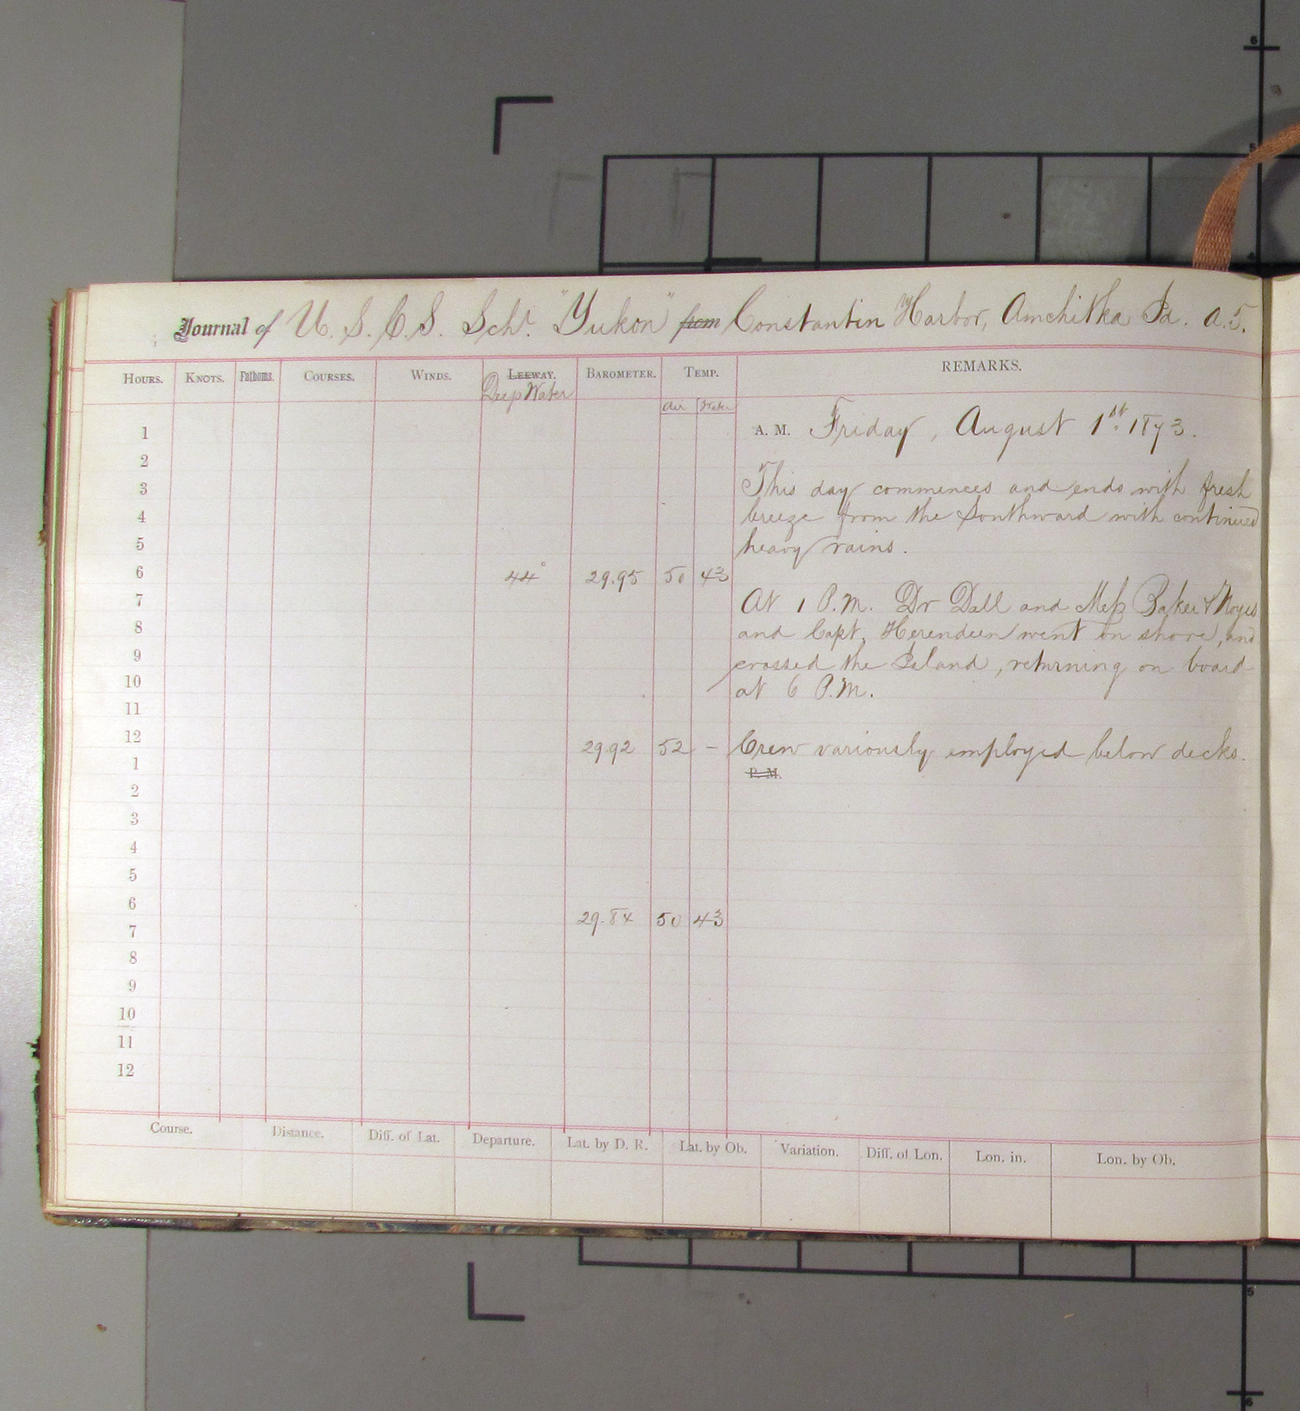 Journal of U. S. C. S. Schr. "Yukon" from Constantin Harbor, Amchitka Id. A. T.
HOURS. KNOTS. Fathoms. COURSES. WINDS. LEEWAY. BAROMETER. TEMP. REMARKS.
Deep Water
Air Water
A. M. Friday, August 1st. 1873.
1
2
3 This day commences and ends with fresh
4 breeze from the Southward with continued
5 heavy rains.
6 44° 29.95 50 43
7 At 1 P.M. Dr Dall and Mess Baker & Noyes
8 and Capt. Herendeen went on shore, and
9 crossed the Island, returning on board
10 at 6 P.M.
11
12 29.92 52 – Crew variously employed below decks.
1 P. M.
2
3
4
5
6 29.84 50 43
7
8
9
10
11
12
Course. Distance. Diff. of Lat. Departure. Lat. by D. R. Lat. by Ob. Variation. Diff. of Lon. Lon. in. Lon. by Ob.